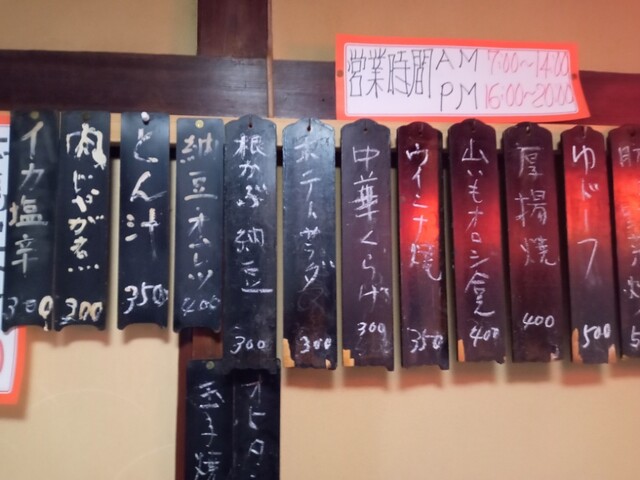 営業時間 AM 7:00~14:00
PM 16:00~20:00
イカ塩辛 300
肉じゃが煮 300
とん汁 350
納豆オムレツ 400
根かぶ納豆 300
ポテトサラダ 300
中華くらげ 300
ウインナ焼 350
山いもオロシ合え 400
厚揚焼 400
ゆドーフ 500
玉子焼
オヒタシ